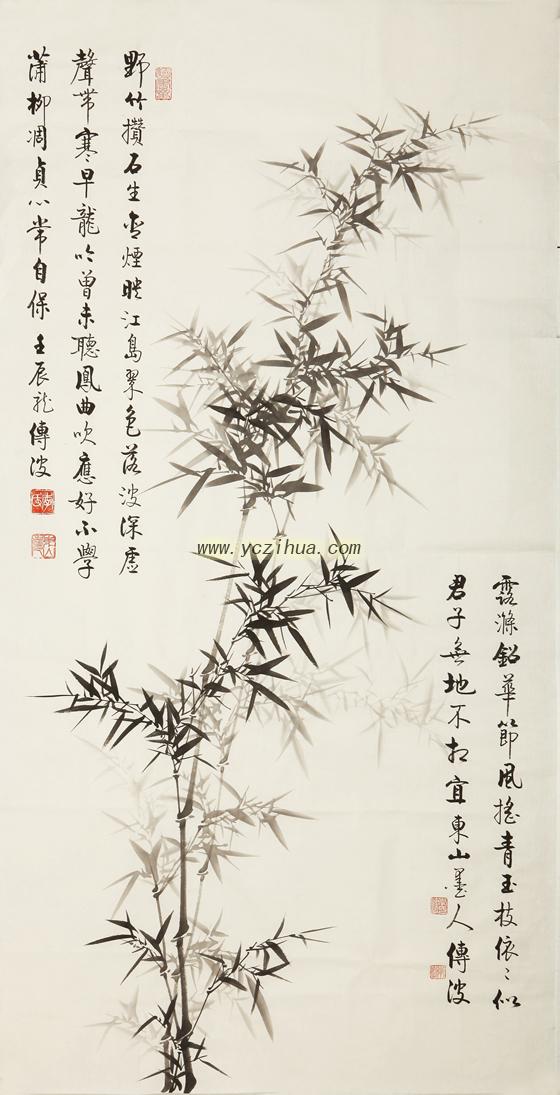 野竹攢石生含煙暎江島翠色落波深虛
聲帶寒早龍吟曾未聽鳳曲吹應好不學
蒲柳凋貞心常自保 壬辰龍傳波
露滌鉛華節風搖青玉枝依〻似
君子無地不相宜東山墨人傳波
www.yczihua.com